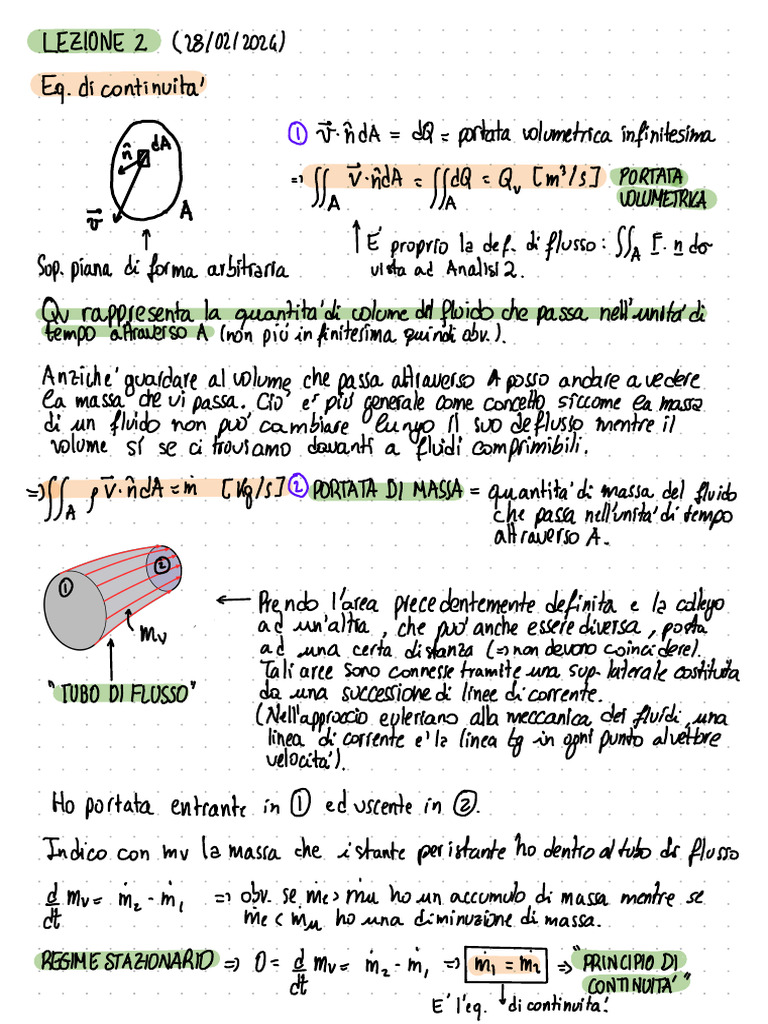 LEZIONE 2 (28/02/2024)
Eq. di continuita'
n̂ dA
v⃗ A
Sup. piana di forma arbitraria
① v⃗·n̂dA = dQ = portata volumetrica infinitesima
=> ∬_A v⃗·n̂dA = ∬_A dQ = Qv [m³/s] PORTATA
VOLUMETRICA
E' proprio la def. di flusso: ∬_A F·n dσ
vista ad Analisi 2.
Qv rappresenta la quantita' di volume del fluido che passa nell'unita' di
tempo attraverso A (non piú infinitesima quindi obv.).
Anziche' guardare al volume che passa attraverso A posso andare a vedere
la massa che vi passa. Cio' e' piú generale come concetto siccome la massa
di un fluido non puo' cambiare lungo il suo deflusso mentre il
volume sí se ci troviamo davanti a fluidi comprimibili.
=> ∬_A ρv⃗·n̂dA = ṁ [Kg/s] ② PORTATA DI MASSA = quantita' di massa del fluido
che passa nell'unita' di tempo
attraverso A.
① ②
mv
"TUBO DI FLUSSO"
← Prendo l'area precedentemente definita e la collego
ad un'altra, che puo' anche essere diversa, posta
ad una certa distanza (=> non devono coincidere).
Tali aree sono connesse tramite una sup. laterale costituita
da una successione di linee di corrente.
(Nell'approccio euleriano alla meccanica dei fluidi, una
linea di corrente e' la linea tg in ogni punto al vettore
velocita').
Ho portata entrante in ① ed uscente in ②.
Indico con mv la massa che istante per istante ho dentro al tubo di flusso
d/dt mv = ṁ₂ - ṁ₁ => obv. se ṁe > ṁu ho un accumulo di massa mentre se
ṁe < ṁu ho una diminuzione di massa.
REGIME STAZIONARIO => 0 = d/dt mv = ṁ₂ - ṁ₁ => ṁ₁ = ṁ₂ => "PRINCIPIO DI
CONTINUITA'"
E' l'eq. di continuita'!